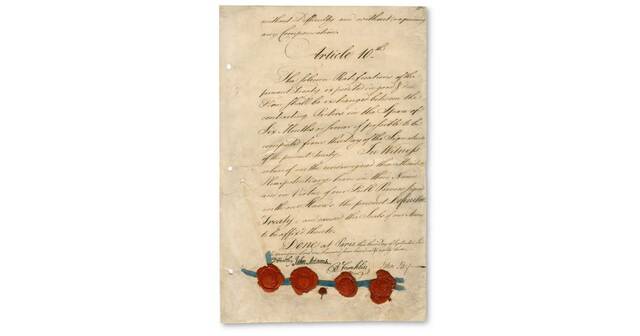 without Difficulty and without requiring
any Compensation.
Article 10th.
The solemn Ratifications of the
present Treaty expedited in good & due
Form shall be exchanged between the
contracting Parties in the Space of
Six Months or sooner if possible to be
computed from the Day of the Signature
of the present Treaty. In Witness
whereof we the undersigned their
Plenipotentiary have in their Name
and in Virtue of our Full Powers signed
with our Hands the present Definitive
Treaty, and caused the Seals of our Arms
to be affix'd thereto.
Done at Paris, this third Day of September
John Adams B Franklin John Jay